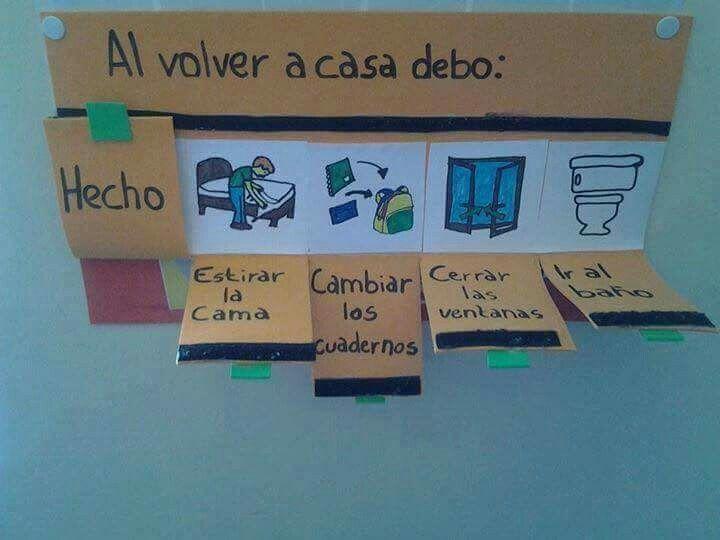 Al volver a casa debo:
Hecho
Estirar
la
Cama
Cambiar
los
cuadernos
Cerrar
las
ventanas
Ir al
baño